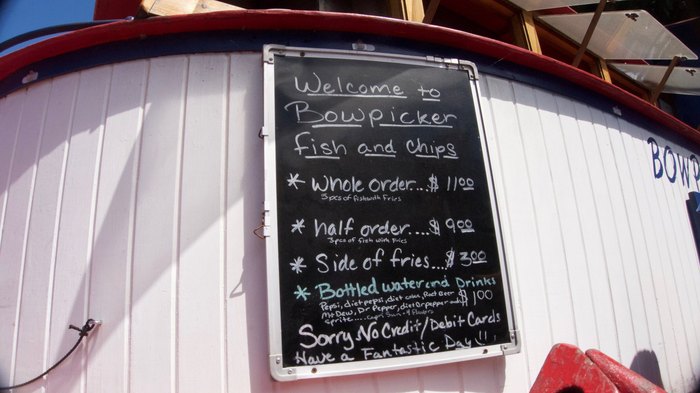 Welcome to
Bowpicker
fish and chips
* Whole order...$ 11.00
3 pcs of fish with Fries
* half order....$ 9.00
3 pcs of fish with fries
* Side of fries...$ 3.00
* Bottled water and Drinks
Pepsi, diet pepsi, diet coke, Root Beer $1.00
Mt Dew, Dr Pepper, diet Dr pepper and
Sprite.... Capri Sun
Sorry No Credit/Debit Cards
Have a Fantastic Day!!
BOWP